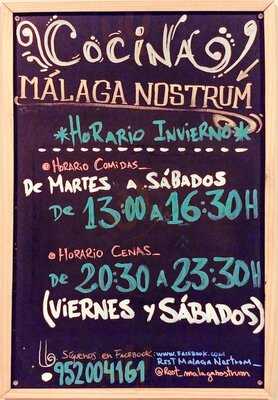 COCINA
MÁLAGA NOSTRUM
*HORARIO INVIERNO*
HORARIO COMIDAS_
DE MARTES A SÁBADOS
DE 13:00 A 16:30H
HORARIO CENAS_
DE 20:30 A 23:30H
(VIERNES Y SÁBADOS)
SÍGUENOS EN FACEBOOK: www.FACEBOOK.COM
REST MALAGA NOSTRUM_
952004161 @Rest_malaganostrum